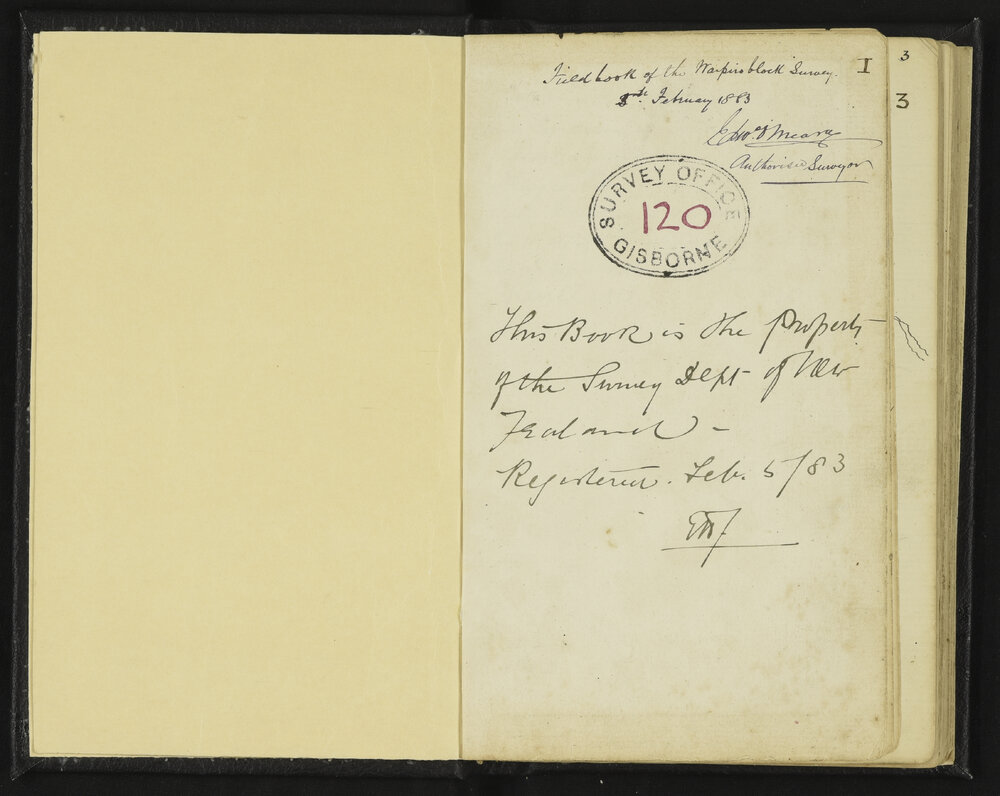 Field book of the Waipiro block Survey.
February 1883
I
3
3
Edwd O'Meara
Authorised Surveyor
SURVEY OFFICE
120
GISBORNE
This Book is the property
of the Survey Dept of New
Zealand –
Registered. Feb. 5/83